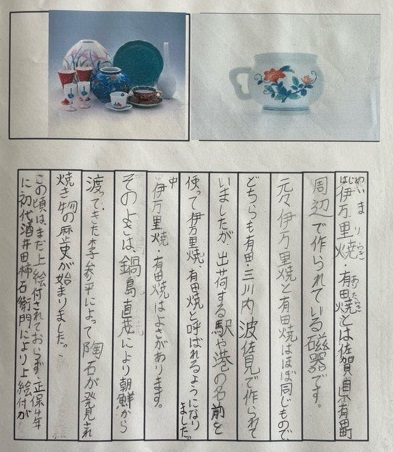 はじ
伊万里焼・有田焼とは佐賀県有田町
周辺で作られている磁器です。
元々伊万里焼と有田焼はほぼ同じもので
どちらも有田・三川内・波佐見で作られて
いましたが、出荷する駅や港の名前を
使って伊万里焼・有田焼と呼ばれるようになり
ました。
中
伊万里焼・有田焼はよさがあります。
そのよさは、鍋島直茂により朝鮮から
渡ってきた李参平によって陶石が発見され
焼き物の歴史が始まりました。
この頃は、まだ上絵付されておらず、正保4年
に初代酒井田柿右衛門により上絵付が